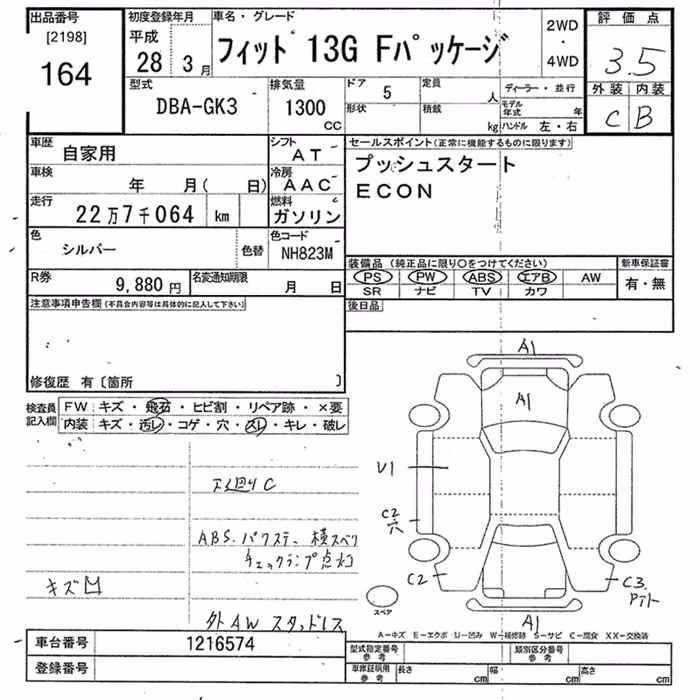 出品番号 初度登録年月 車名・グレード 2WD・4WD 評価点
[2198] 平成
164 28年 3月 フィット 13G Fパッケージ 3.5
型式 排気量 ドア 定員 ディーラー・並行 外装 内装
DBA-GK3 1300 CC 5 人 モデル年式 年 C B
形状 積載 kg ハンドル 左・右
車歴 自家用 シフト AT セールスポイント(正常に機能するものに限ります)
車検 年 月( 日) 冷房 AAC プッシュスタート
走行 22万7千064 km 燃料 ガソリン ECON
色 シルバー 色替 色コード NH823M
装備品 (純正品に限り〇をつけてください) 新車保証書
PS PW ABS エアB AW 有・無
SR ナビ TV カワ
R券 9,880円 名変通知期限 月 日
注意事項申告欄(不具合内容等は具体的に記入して下さい) 後日品
修復歴 有〔箇所 〕
検査員記入欄 FW キズ・飛石・ヒビ割・リペア跡・×要
内装 キズ・汚レ・コゲ・穴・スレ・キレ・破レ
A1
A1
U1
下廻りC
C2
穴
ABS.パワステ.横スベリ
チェックランプ点灯
C2
C3
キズ凹
スペア
外AW スタッドレス
A1
A-キズ E-エクボ U-凹み W-補修跡 S-サビ C-腐食 XX-交換済
車台番号 1216574 型式指定番号 参考 類別区分番号 参考
登録番号 車庫証明用 参考 長さ cm 幅 cm 高さ cm